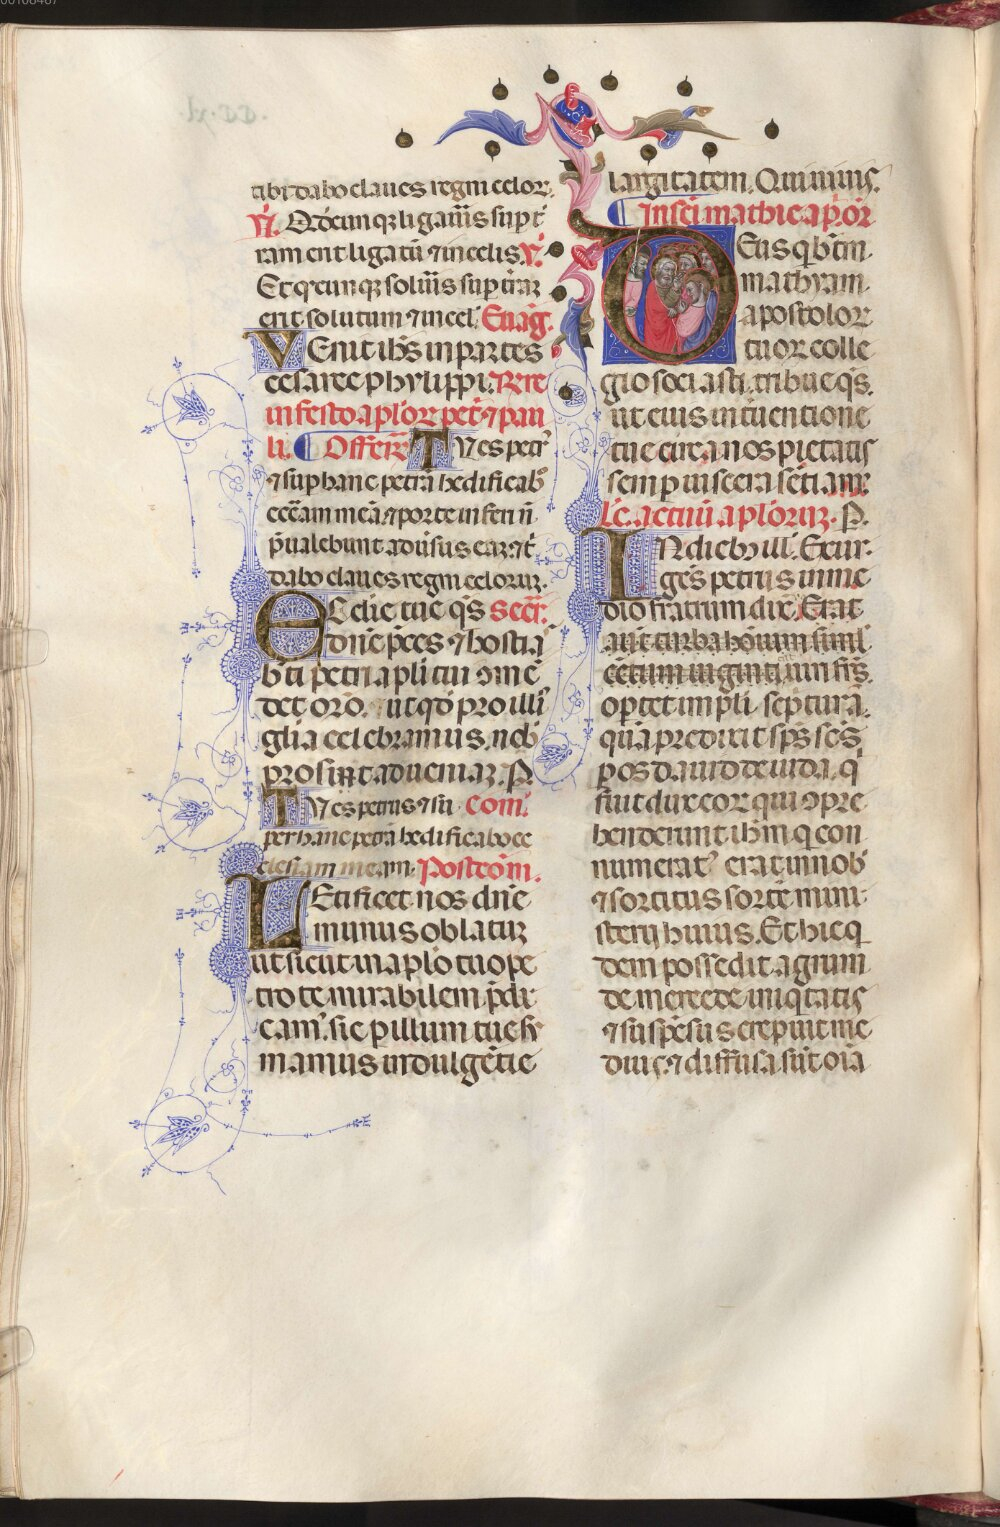 tibi dabo claues regni celor.
V. Qdcunqz ligauis sup t
ram erit ligatū ⁊ in celis. V.
Et qcunqz soluīs sup trā
erit solutum ⁊ in cel. Euāg.
VEnit ihs in partes
cesaree phylippi. Reꝛe
in festo aploꝛ petꝛ ⁊ pau
li. Offerē. Tu es petr
⁊ sup hanc petrā hedificab
ecc̄am meā ⁊ porte inferi n̄
p̄ualebunt aduisus eaz ⁊ t
dabo claues regni celorū.
Ecclie tue qs secr.
dn̄e p̄ces ⁊ hostia
bt̄i petri apli tui ↄmē
det or̄o. ut qd pro illi
gl̄ia celebramus. nob
prosint ad ueniaz. P
Tu es petrus ⁊ su Com.
per hanc petrā hedificabo ec
clesiam meam. Postcōm.
LEtificet nos dn̄e
munus oblatuz
ut sicut in aplo tuo pe
tro te mirabilem p̄di
cam. sic p illum tue s
mamus indulgētie
largitatem. Qui uiuis.
In sc̄i mathie apl'or
DEus q bt̄m
mathyam
apostolor
tuoꝛ colle
gio sociasti. tribue qs.
ut eius interuentione
tue circa nos pietatis
semp uiscera sētiam.
Lc̄. actuū aploruz. P.
IN dieb ill. Exur-
gēs petrus in me
dio fratrum dix. Erat
aūt turba hōinum siml'
centum uiginti uiri frs.
optet impli scpturā.
quā predixit sps scs
p os dauid de iuda. q
fuit dux eoꝛ qui ↄpre
henderunt ihm q con
numerat erat in nob
⁊ sortitus sortē mini
sterij huius. Et hic q
dem possedit agrum
de mercede iniqtatis
⁊ suspēsus crepuit me
dius. ⁊ diffusa sūt oīa